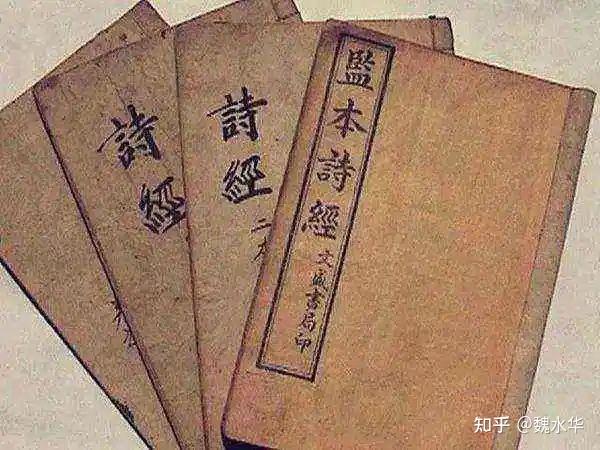 監本詩經
文盛書局印
詩經
二本
詩經
知乎 @魏水华